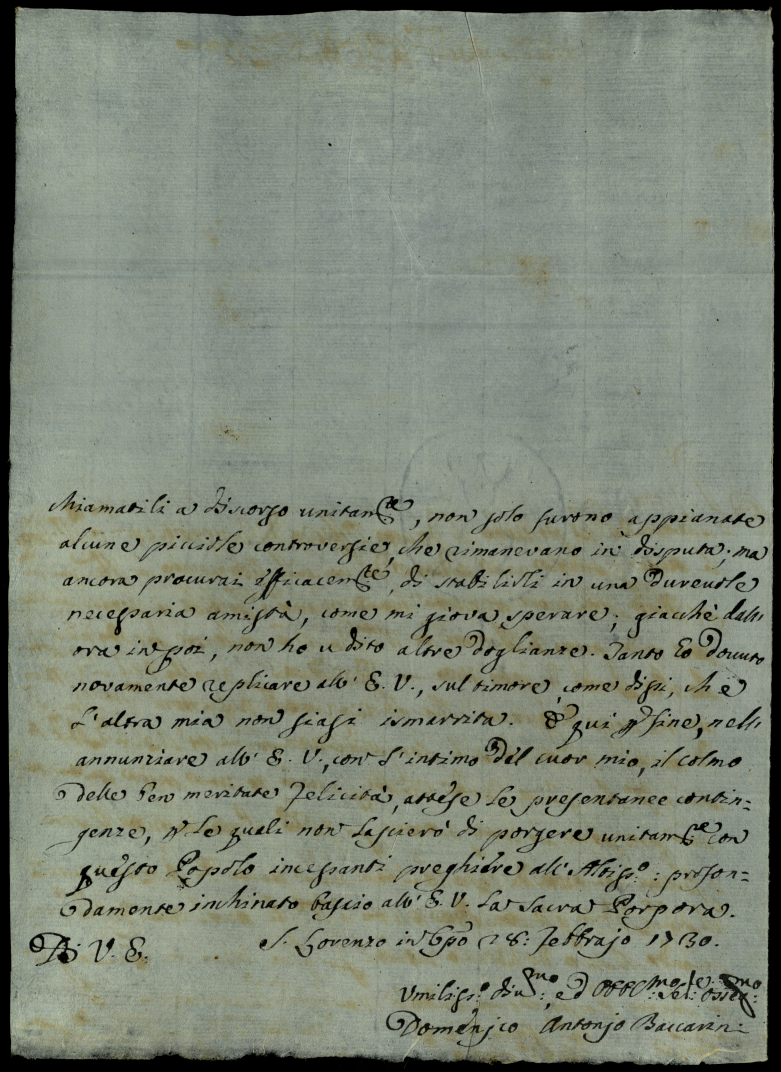 chiamatili a discorso unitam.te, non solo furono appianate
alcune picciole controversie, che rimanevano in disputa; ma
ancora procurai efficacem.te, di stabilirli in una durevole
necessaria amistà, come mi giova sperare; giacchè dall'
ora in poi, non ho udito altre doglianze. Tanto ho dovuto
novamente replicare all' E. V., sul timore, come dissi, che
l'altra mia non siasi ismarrita. E qui p fine, nell'
annunziare all' E. V., con l'intimo del cuor mio, il colmo
delle ben meritate felicità, attese le presentanee contin=
genze, p le quali non lascierò di porgere unitam.te con
questo Popolo incessanti preghiere all' Altiss.o: profon=
damente inchinato bascio all' E. V. la Sacra Porpora.
Di V. E. S. Lorenzo in 28: Febbrajo 1730.
Umiliss.o div.mo, ed Obb.mo
Domenico Antonio Baccarin: